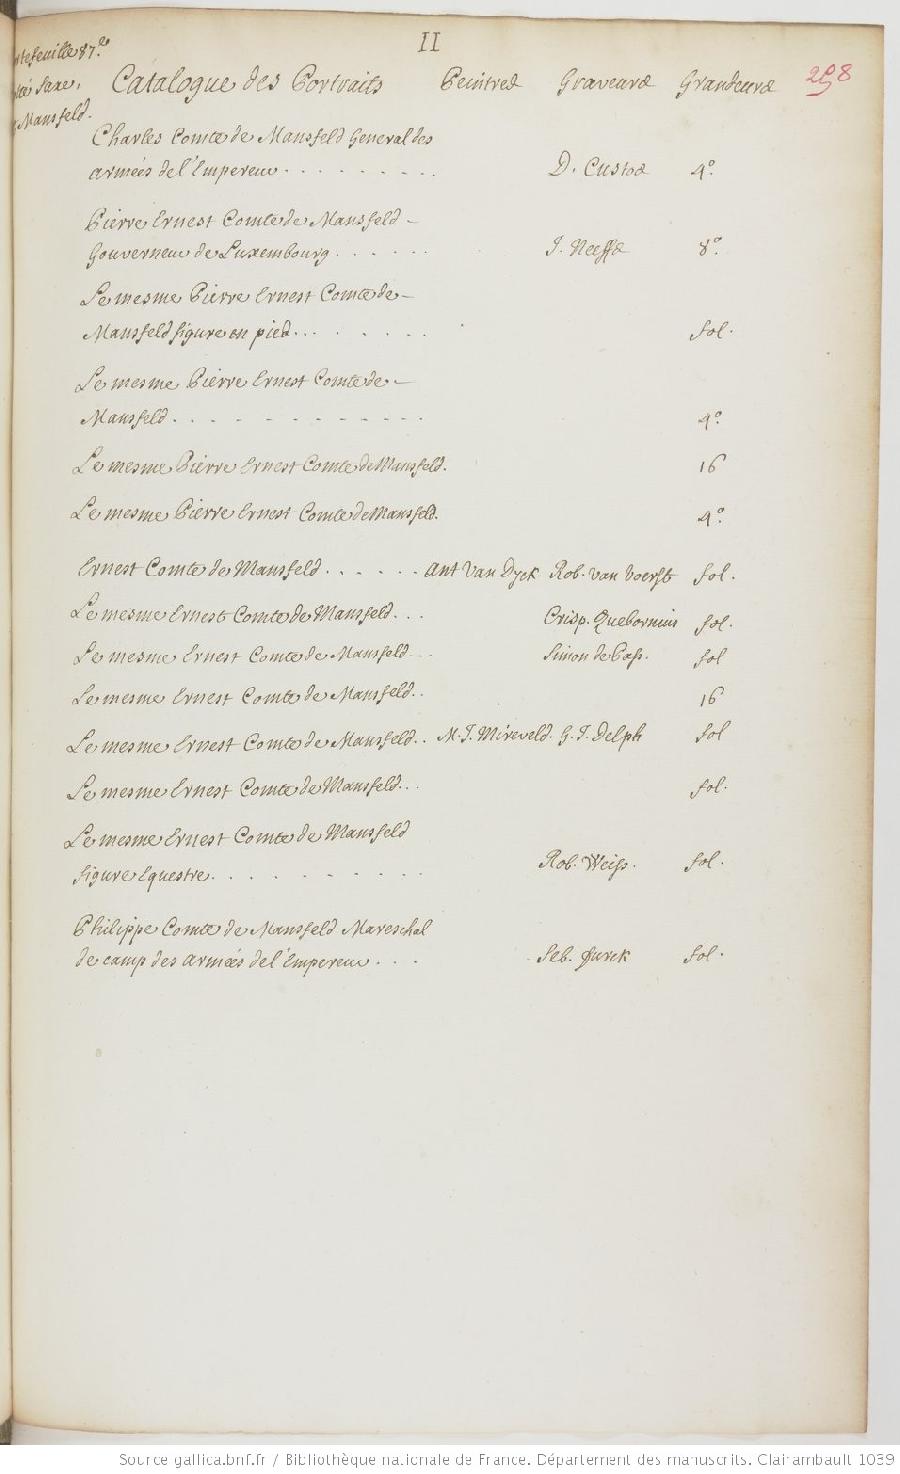 II
298
Portefeuille 87.e
Saxe,
Mansfeld.
Catalogue des Portraits Peintres Graveurs Grandeurs
Charles Comte de Mansfeld General des
armées de l'Empereur . . . . . . . . . D. Custos 4.º
Pierre Ernest Comte de Mansfeld -
Gouverneur de Luxembourg . . . . . . J. Neeffs 8.º
Le mesme Pierre Ernest Comte de -
Mansfeld figure en pied . . . . . . . . fol.
Le mesme Pierre Ernest Comte de -
Mansfeld . . . . . . . . . . . . 4.º
Le mesme Pierre Ernest Comte de Mansfeld. 16
Le mesme Pierre Ernest Comte de Mansfeld. 4.º
Ernest Comte de Mansfeld . . . . . . Ant Van Dyck Rob. van Voerst fol.
Le mesme Ernest Comte de Mansfeld . . . Crisp. Quebornius fol.
Le mesme Ernest Comte de Mansfeld . . . Simon de Pass. fol
Le mesme Ernest Comte de Mansfeld . . 16
Le mesme Ernest Comte de Mansfeld . . M. J. Mireveld. G. J. Delph fol
Le mesme Ernest Comte de Mansfeld . . . fol.
Le mesme Ernest Comte de Mansfeld
figure Equestre . . . . . . . . . . Rob. Weiss. fol.
Philippe Comte de Mansfeld Mareschal
de camp des armées de l'Empereur . . . Seb. Furck fol.
Source gallica.bnf.fr / Bibliothèque nationale de France. Département des manuscrits. Clairambault 1039